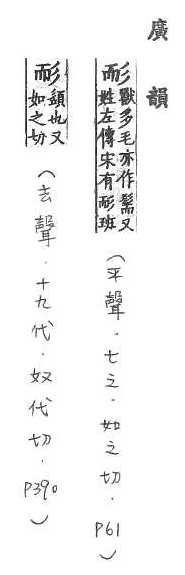 廣韻
耏獸多毛亦作髵又姓左傳宋有耏班(平聲.七之.如之切.P61)
耏頦也又如之切(去聲.十九代.奴代切.P390)